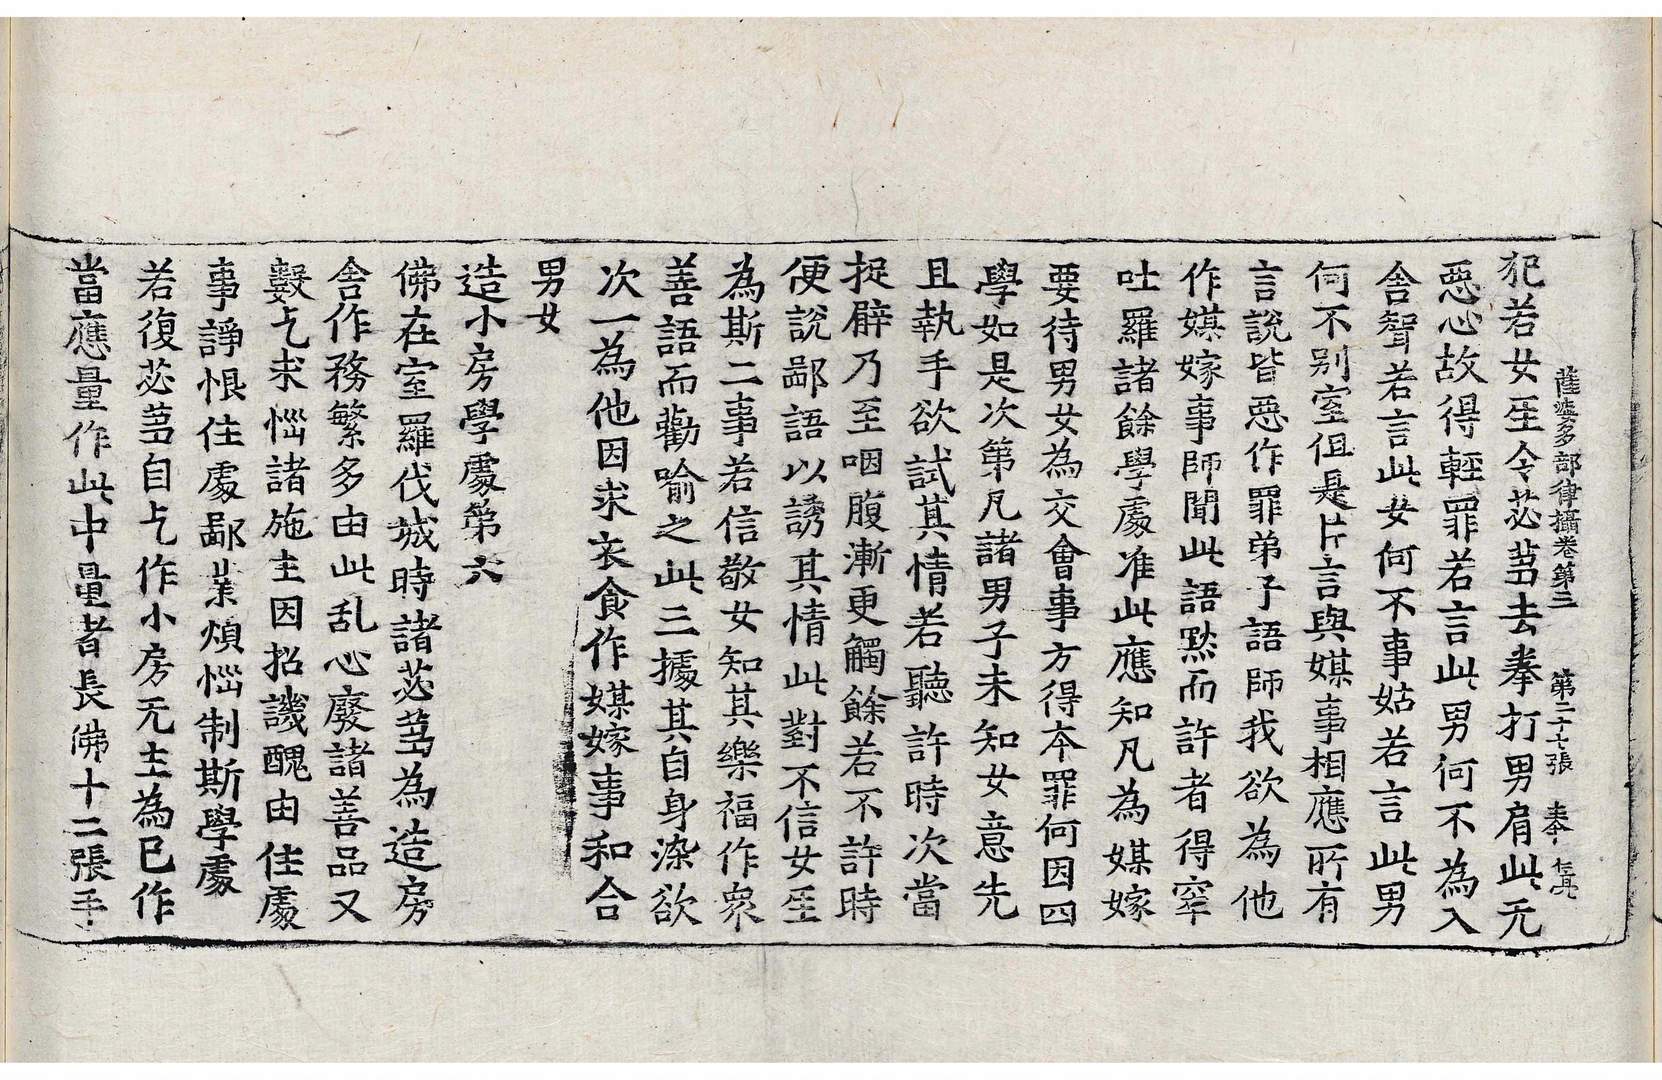 薩婆多部律攝卷第三 第二十七張 㚘
犯若女至令苾芻去拳打男肩此无
惡心故得輕罪若言此男何不為入
舍聟若言此女何不事姑若言此男
何不別室但是片言與媒事相應所有
言說皆惡作罪弟子語師我欲為他
作媒嫁事師聞此語默而許者得窣
吐羅諸餘學處准此應知凡為媒嫁
要待男女為交會事方得夲罪何因四
學如是次第凡諸男子未知女意先
且執手欲試其情若聽許時次當
捉臂乃至咽腹漸更觸餘若不許時
便說鄙語以誘其情此對不信女至
為斯二事若信敬女知其樂福作衆
善語而勸喻之此三據其自身染欲
次一為他因求衣食作媒嫁事和合
男女
造小房學處第六
佛在室羅伐城時諸苾芻為造房
舍作務繁多由此乱心廢諸善品又
數乞求惱諸施主因招譏醜由住處
事諍恨住處鄙業煩惱制斯學處
若復苾芻自乞作小房无主為己作
當應量作此中量者長佛十二張手